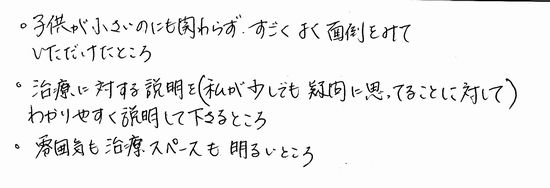 。子供が小さいのにも関わらず、すごくよく面倒をみて
いただけたところ
。治療に対する説明を(私が少しでも疑問に思ってることに対して)
わかりやすく説明して下さるところ
。雰囲気も治療スペースも明るいところ